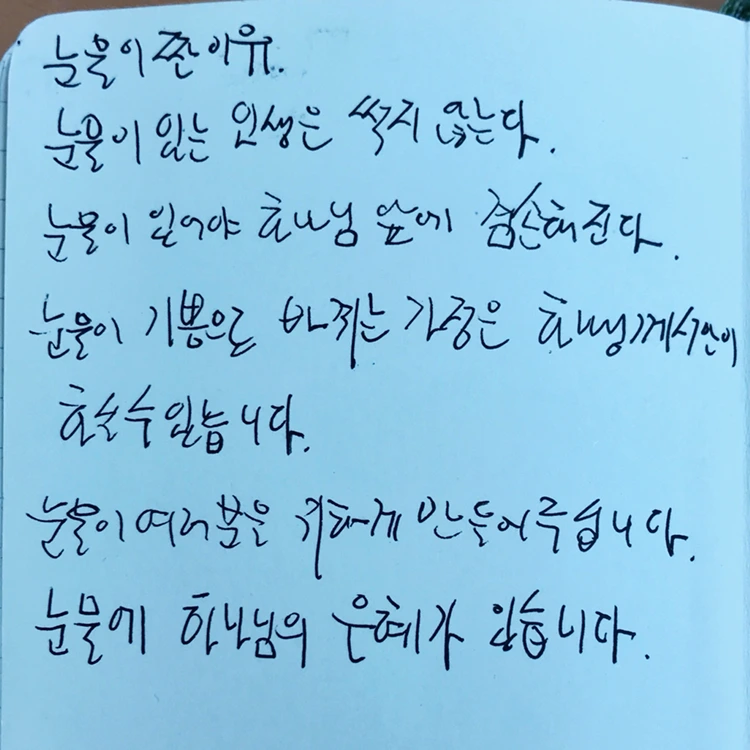 눈물이 짠 이유.
눈물이 있는 인생은 썩지 않는다.
눈물이 있어야 하나님 앞에 겸손해진다.
눈물이 기쁨으로 바뀌는 가정은 하나님께서만이
하실수 있습니다.
눈물이 여러분을 귀하게 만들어 주십니다.
눈물에 하나님의 은혜가 있습니다.